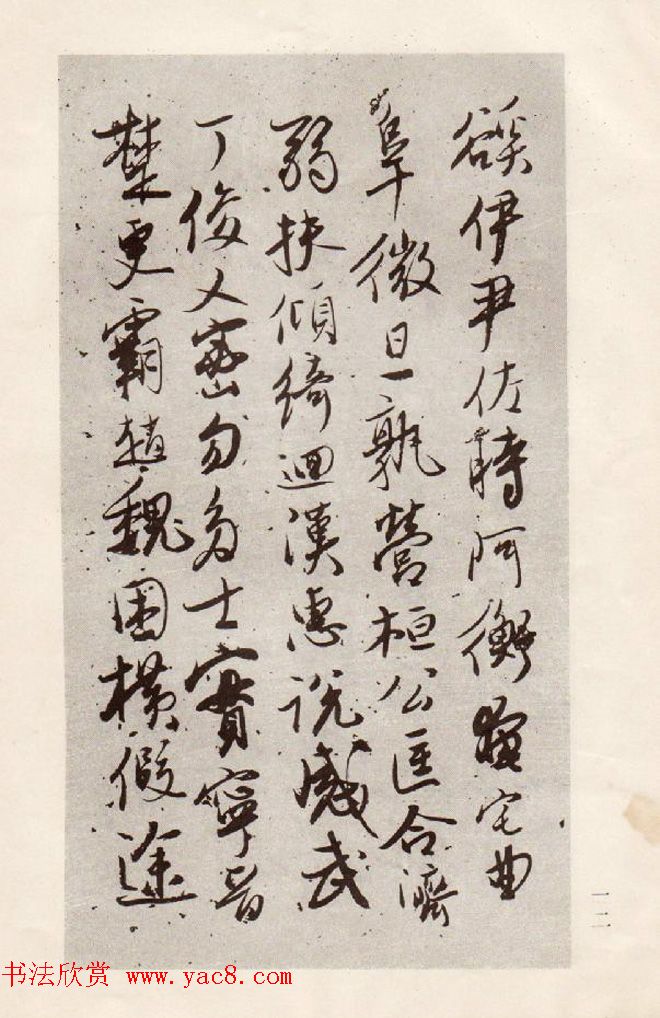 谿伊尹佐時阿衡奄宅曲
阜微旦孰營桓公匡合濟
弱扶傾綺迴漢惠說感武
丁俊乂密勿多士實寧晉
楚更霸趙魏困橫假途
一二
书法欣赏 www.yac8.com